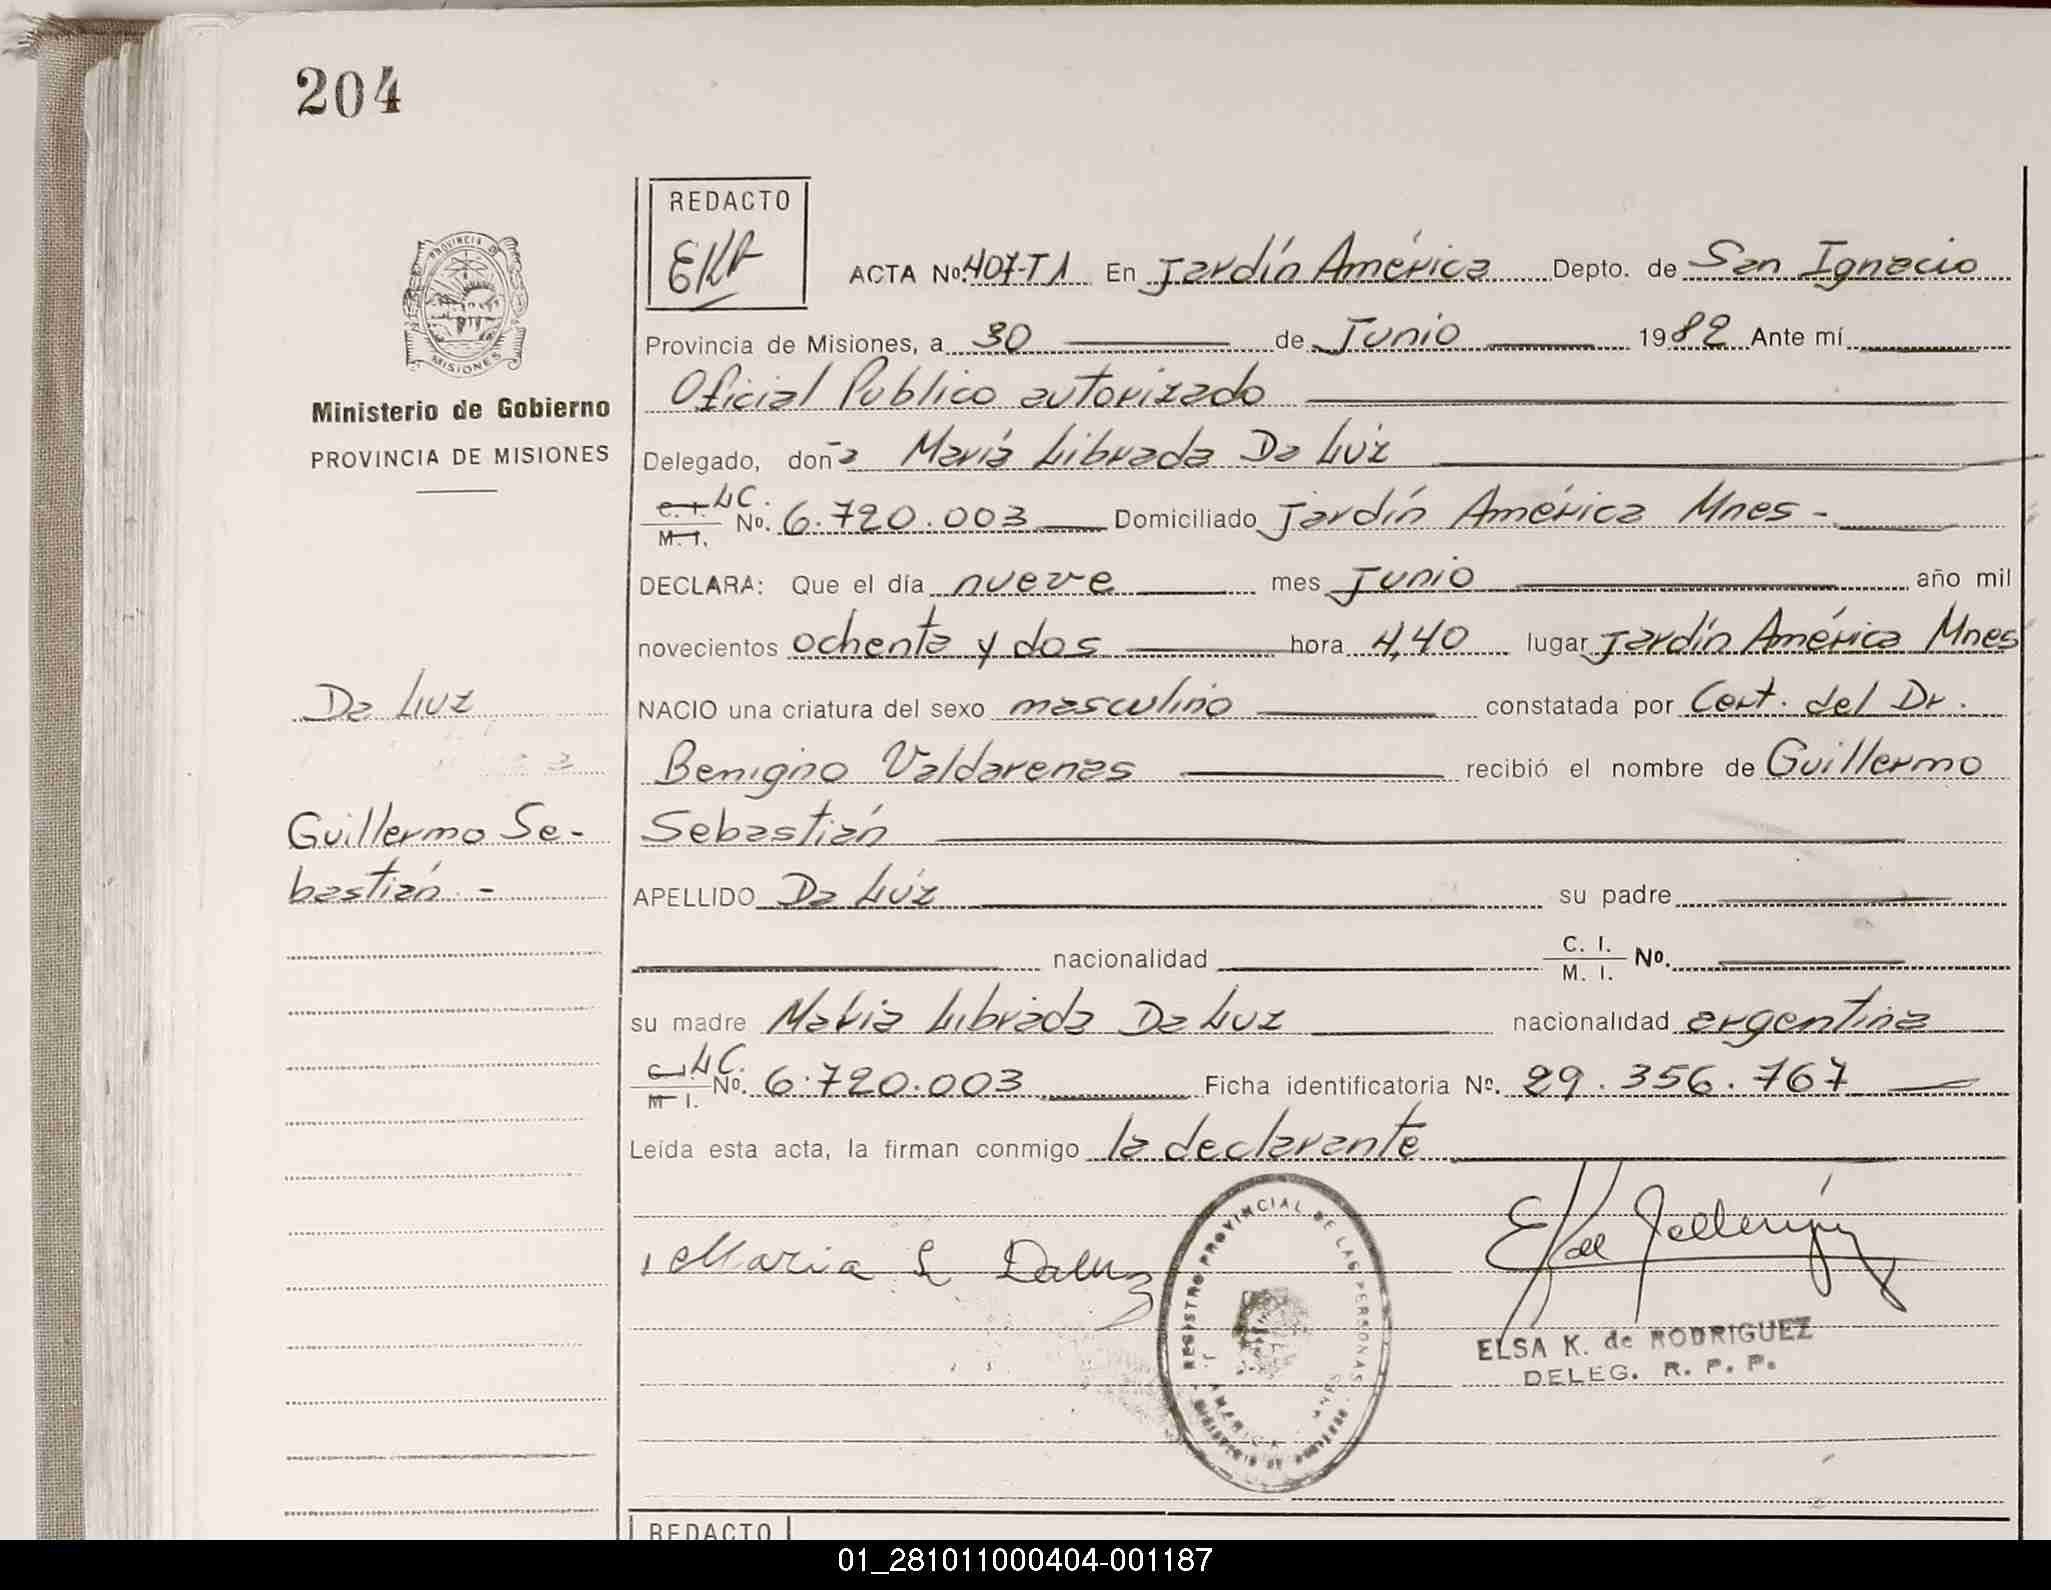 204
REDACTO
EKR
PROVINCIA DE
MISIONES
Ministerio de Gobierno
PROVINCIA DE MISIONES
ACTA No. 407-T1 En Jardín América Depto. de San Ignacio
Provincia de Misiones, a 30 de Junio 1982 Ante mí
Oficial Publico autorizado
Delegado, doña María Librada Da Luz
C. I. LC.
M. I. No. 6.720.003 Domiciliado Jardín América Mnes -
DECLARA: Que el día nueve mes Junio año mil
novecientos ochenta y dos hora 4,40 lugar Jardín América Mnes
Da Luz
NACIO una criatura del sexo masculino constatada por Cert. del Dr.
Benigno Valdarenas recibió el nombre de Guillermo
Guillermo Se-
Sebastián
bastián -
APELLIDO Da Luz su padre
nacionalidad C. I.
M. I. No.
su madre Maria Librada Da Luz nacionalidad argentina
C. I. LC.
M I. No. 6.720.003 Ficha identificatoria No. 29.356.767
Leída esta acta, la firman conmigo la declarante
Maria L Daluz
REGISTRO PROVINCIAL DE LAS PERSONAS
ELSA K. de RODRIGUEZ
DELEG. R. P. P.
REDACTO
01_281011000404-001187